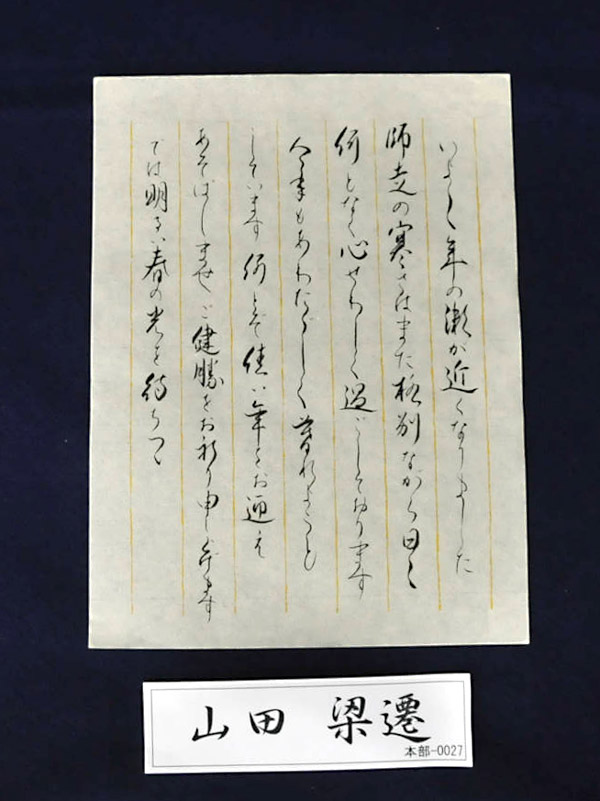 いよ〱年の瀬が近くなりました
師走の寒さはまた格別ながら日々
何となく心せわしく過ごしております
今年もあわただしく暮れようと
しています 何とぞ佳い年をお迎え
あそばしませ ご健勝をお祈り申し上げます
では明るい春の光を待ちつつ
山田 梁遷
本部-0027